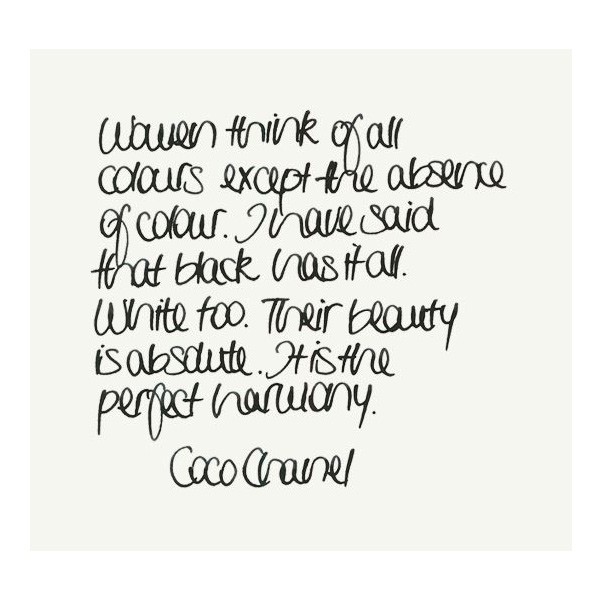 Women think of all
colours except the absence
of colour. I have said
that black has it all.
White too. Their beauty
is absolute. It is the
perfect harmony.
Coco Chanel